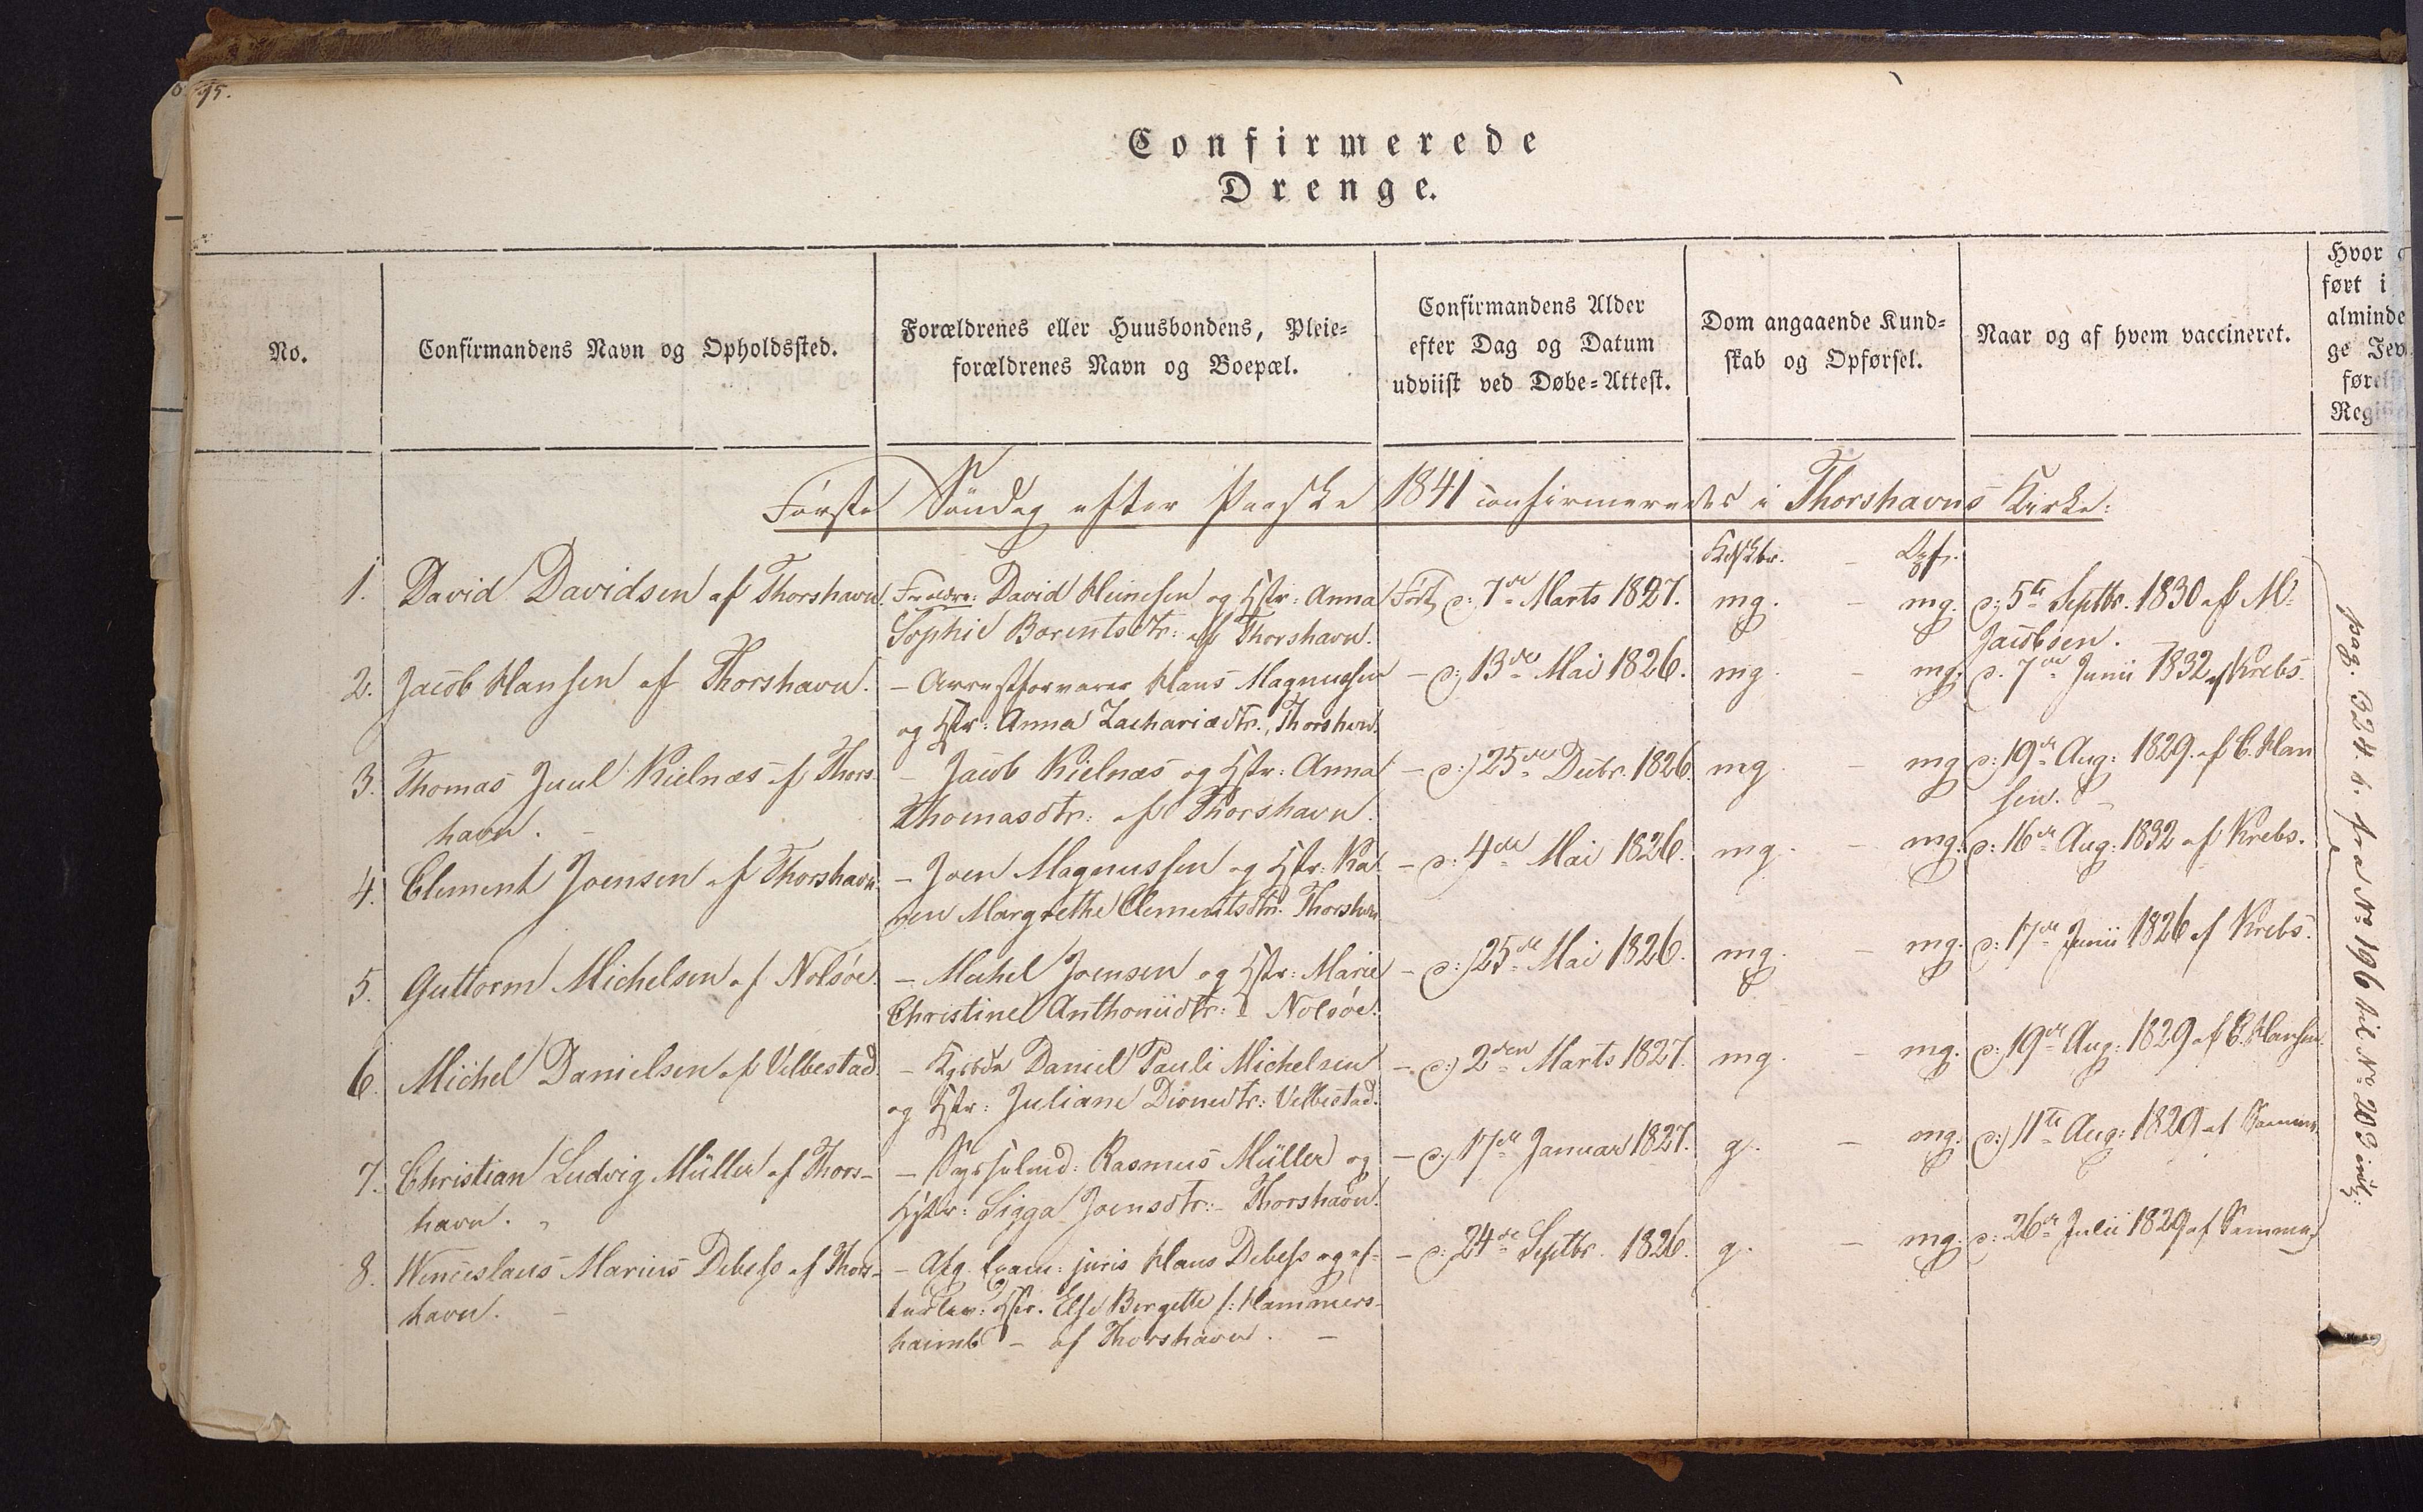 95.
Confirmerede
Drenge.
No.
Confirmandens Navn og Opholdssted.
Forældrenes eller Huusbondens, Pleie-
forældrenes Navn og Boepæl.
Confirmandens Alder
efter Dag og Datum
udviist ved Døbe-Attest.
Dom angaaende Kund-
skab og Opførsel.
Naar og af hvem vaccineret.
Hvor
ført i
alminde
ge Jev
førelse
Regist
Første Søndag efter Paaske 1841 confirmeredes i Thorshavns Kirke:
Kdskbr. - Opf.
1. David Davidsen af Thorshavn. Forældre: David Heinesen og Hstr: Anna Født d: 7de Marts 1827. mg. - mg. d: 5te Septbr. 1830 af M.
Sophie Barentsdtr: af Thorshavn. Jacobsen.
2. Jacob Hansen af Thorshavn. - Arrestforvarer Hans Magnussen - d: 13de Mai 1826. mg. - mg. d. 7de Junii 1832 af Krebs.
og Hstr: Anna Zachariædtr., Thorshavn.
3. Thomas Juul Kielnæs af Thors- - Jacob Kielnæs og Hstr: Anna - d: 25de Decbr. 1826. mg. - mg. d: 19de Aug: 1829. af C. Han
havn. - Thomasdtr: af Thorshavn. sen.
4. Clement Joensen af Thorshavn. - Joen Magnussen og Hstr: Ka- - d: 4de Mai 1826. mg. - mg. d: 16de Aug: 1832 af Krebs.
ren Margrethe Clementsdtr. Thorshavn
5. Guttorm Michelsen af Nolsøe. - Michel Joensen og Hstr: Marie - d: 25de Mai 1826. mg. - mg. d: 17de Junii 1826 af Krebs.
Christine Anthoniidtr: Nolsøe.
6. Michel Danielsen af Velbestad. - Kgsbde Daniel Pauli Michelsen - d: 2den Marts 1827. mg. - mg. d: 19de Aug: 1829 af C. Hansen.
og Hstr: Juliane Dionedtr: Velbestad.
7. Christian Ludvig Müller af Thors- - Sysselmd: Rasmus Müller og - d: 17de Januar 1827. g. - mg. d: 11te Aug: 1829 af Samme.
havn. Hstr: Sigga Joensdtr: - Thorshavn.
8. Wenceslaus Marius Debess af Thors- - Afg. Exam: juris Hans Debess og ef- - d: 24de Septbr. 1826. g. - mg. d: 26de Julii 1829 af Samme
havn. - terlev: Hstr. Else Birgette f: Hammers-
haimb - af Thorshavn. -
pag. 324. fra No 196 til No 203 incl: